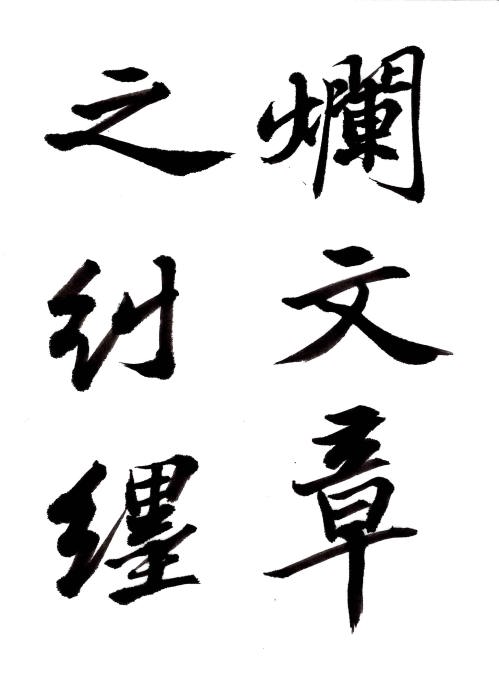 爛文章
之糾纏